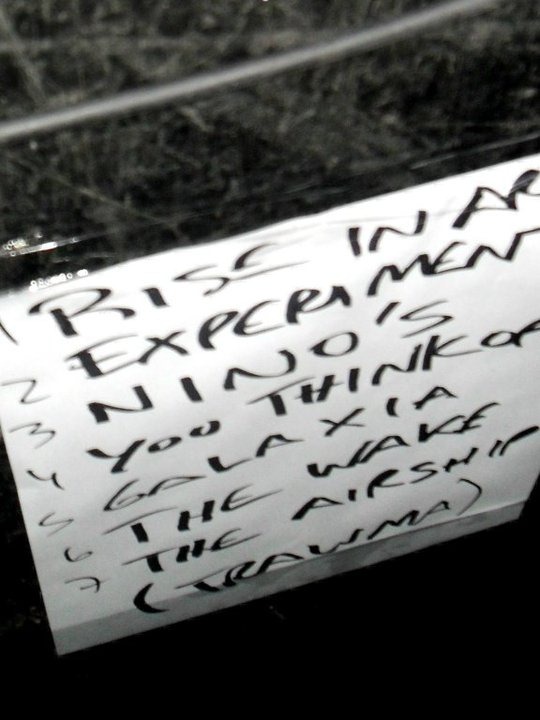 1 RISE IN AR
2 EXPERIMENT
3 NINO'S
4 YOU THINK OF
5 GALAXIA
6 THE WAKE
7 THE AIRSHIP
(TRAWMA)